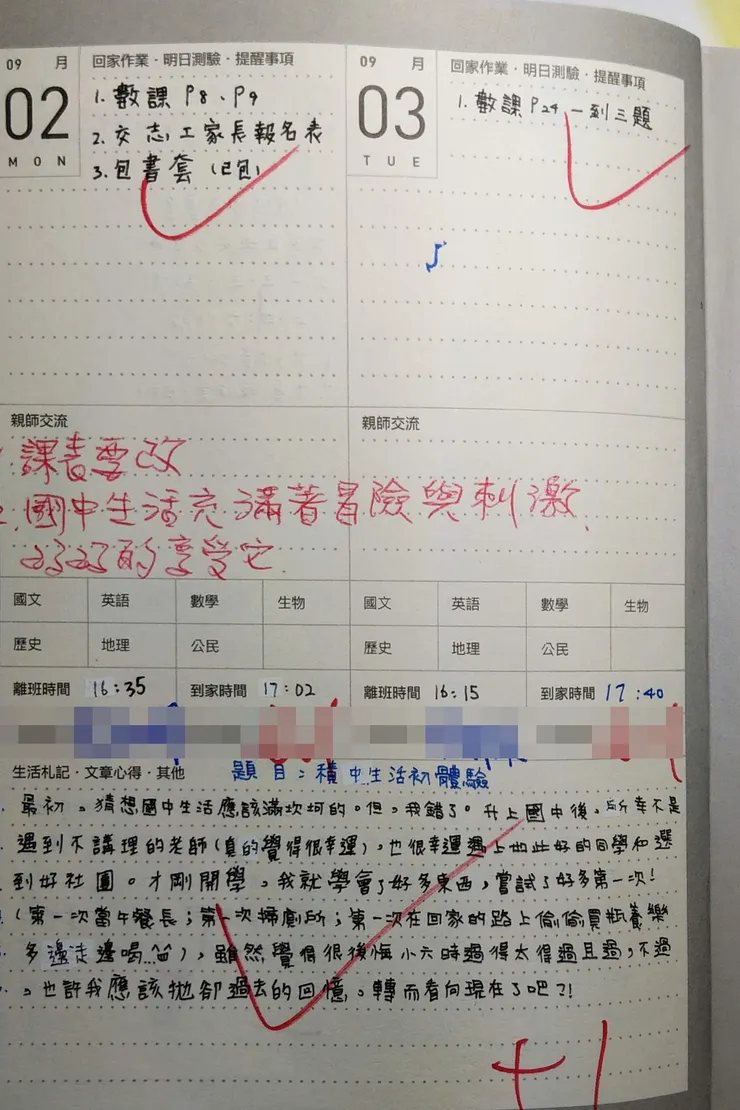 09 月
02
MON
回家作業·明日測驗·提醒事項
1. 數課 P8、P9
2. 交志工家長報名表
3. 包書套 (已包)
09 月
03
TUE
回家作業·明日測驗·提醒事項
1. 數課 P24 一到三題
親師交流
親師交流
課表要改
2. 國中生活充滿著冒險與刺激,
好好的享受它.
國文 英語 數學 生物 國文 英語 數學 生物
歷史 地理 公民 歷史 地理 公民
離班時間 16:35 到家時間 17:02 離班時間 16:15 到家時間 17:40
生活札記·文章心得·其他 題目:積中生活初體驗
最初,猜想國中生活應該滿坎坷的。但,我錯了。升上國中後,所幸不是
遇到不講理的老師(真的覺得很幸運),也很幸運遇上如此好的同學和選
到好社團。才剛開學,我就學會了好多東西,嘗試了好多第一次!
(第一次當午餐長;第一次掃廁所;第一次在回家的路上偷偷買瓶養樂
多邊走邊喝...),雖然覺得很後悔小六時過得太得過且過,不過
,也許我應該拋卻過去的回憶,轉而看向現在了吧?!
+1